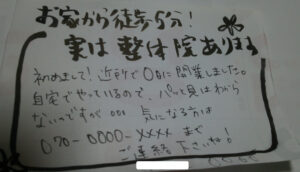 お家から徒歩5分!
実は 整体院あります
初めまして!近所で〇〇に開業しました。
自宅でやっているので、パッと見はわから
ないっですが... 気になる方は
070-0000-XXXX まで
ご連絡 下さいね!